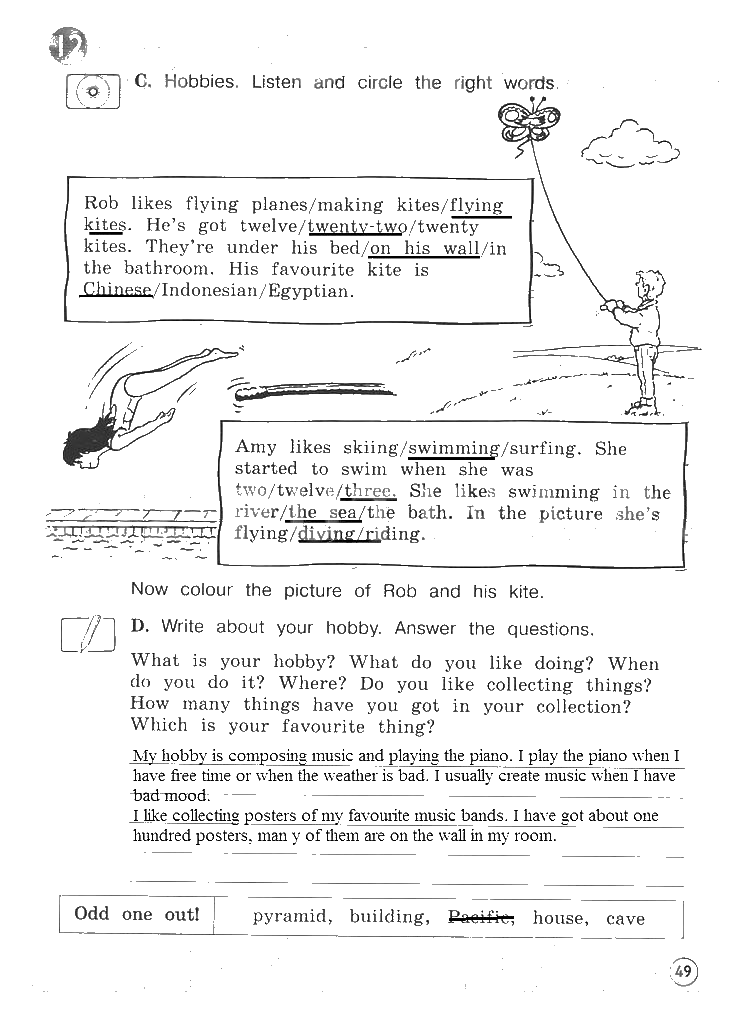 12
C. Hobbies. Listen and circle the right words.
Rob likes flying planes/making kites/flying
kites. He's got twelve/twenty-two/twenty
kites. They're under his bed/on his wall/in
the bathroom. His favourite kite is
Chinese/Indonesian/Egyptian.
Amy likes skiing/swimming/surfing. She
started to swim when she was
two/twelve/three. She likes swimming in the
river/the sea/the bath. In the picture she's
flying/diving/riding.
Now colour the picture of Rob and his kite.
D. Write about your hobby. Answer the questions.
What is your hobby? What do you like doing? When
do you do it? Where? Do you like collecting things?
How many things have you got in your collection?
Which is your favourite thing?
My hobby is composing music and playing the piano. I play the piano when I
have free time or when the weather is bad. I usually create music when I have
bad mood.
I like collecting posters of my favourite music bands. I have got about one
hundred posters, man y of them are on the wall in my room.
Odd one out! pyramid, building, Pacific, house, cave
49